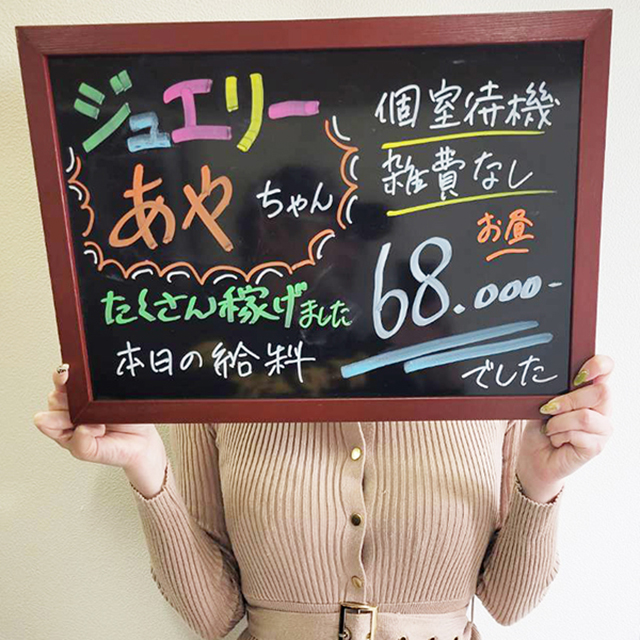 ジュエリー
あや ちゃん
たくさん稼げました
本日の給料
個室待機
雑費なし
お昼
68.000-
でした